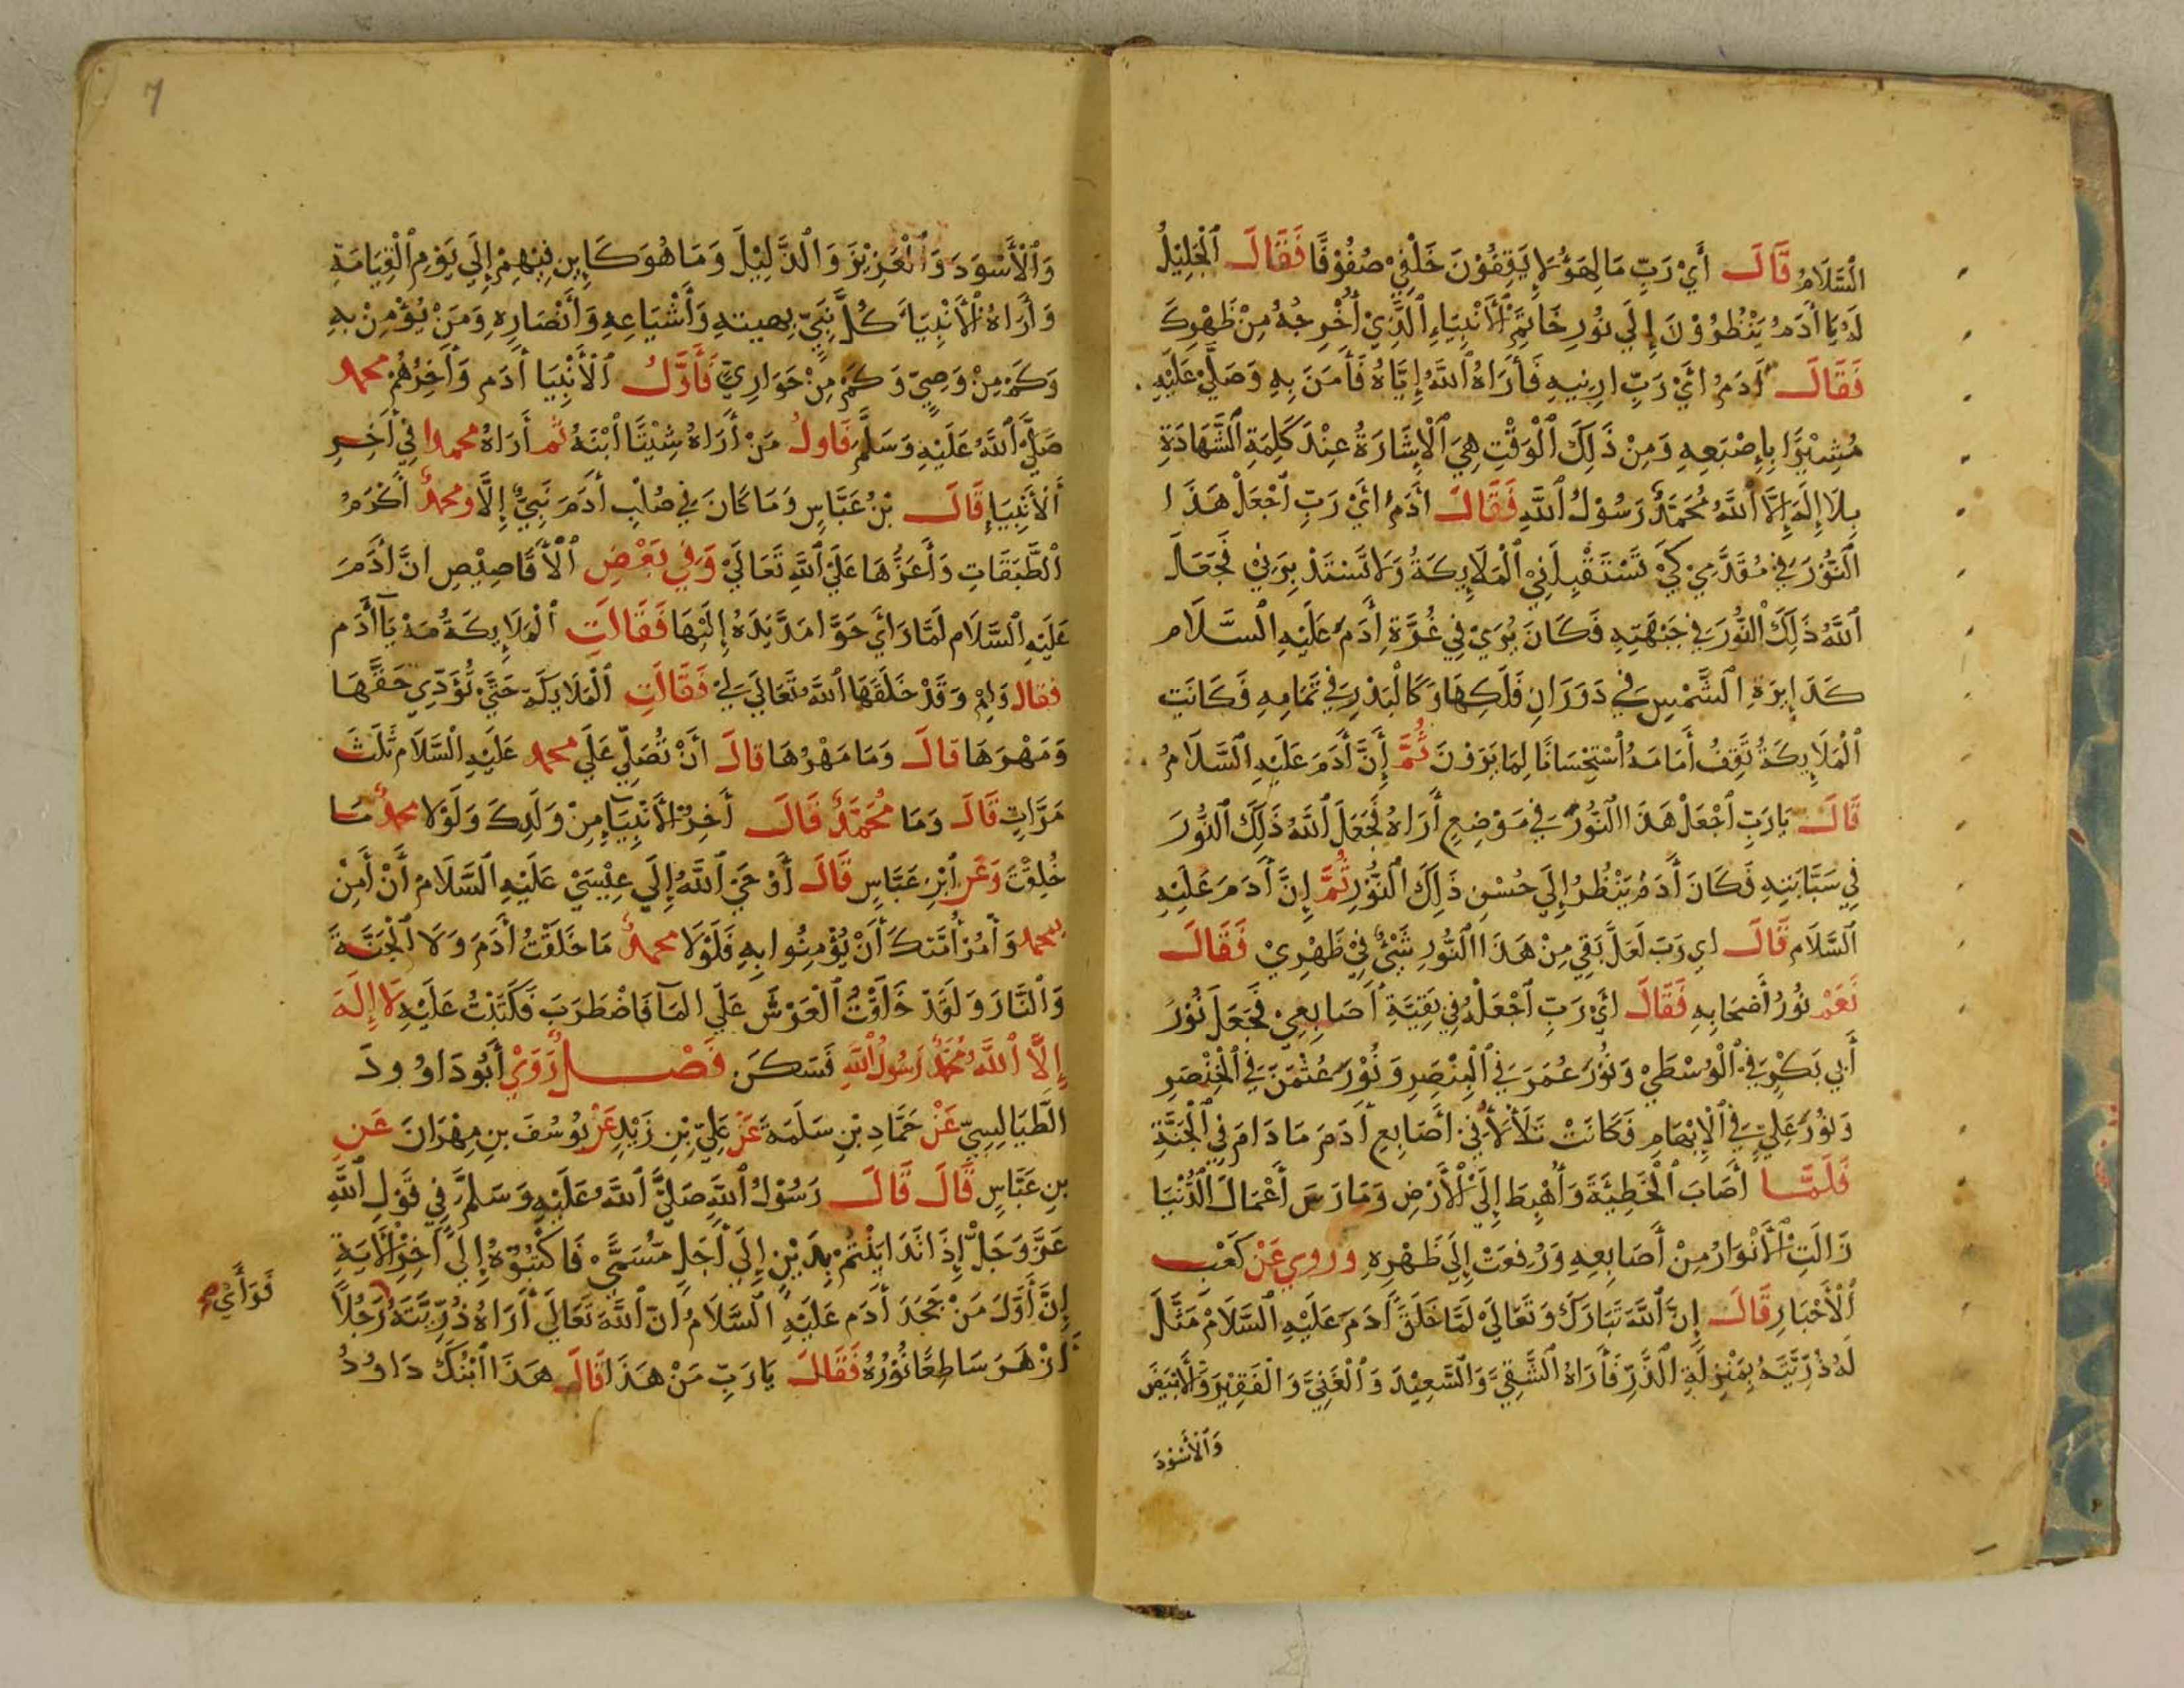 السَّلَامُ قَالَ أَيْ رَبِّ مَا لِهَؤُلَاءِ يَقِفُوْنَ خَلْفِيْ صُفُوْفًا فَقَالَ الْجَلِيْلُ
لَهُ يَا أَدَمُ يَنْظُرُوْنَ إِلَي نُوْرِ خَاتِمِ الْأَنْبِيَاءِ الَّذِيْ أُخْرِجُهُ مِنْ ظَهْرِكَ
فَقَالَ أَدَمُ أَيْ رَبِّ ارِنِيهِ فَأَرَاهُ اللَّهُ إِيَّاهُ فَأَمَنَ بِهِ وَصَلَّيْ عَلَيْهِ
مُشِيْرًا بِإِصْبَعِهِ وَمِنْ ذَلِكَ الْوَقْتِ هِيَ الْإِشَارَةُ عِنْدَ كَلِمَةِ الشَّهَادَةِ
بِلَا إِلَهَ إِلَّا اللَّهُ مُحَمَّدٌ رَسُوْلُ اللَّهِ فَقَالَ أَدَمُ أَيْ رَبِّ اجْعَلْ هَذَا
النُّوْرَ فِي مُقَدَّمِيْ كَيْ تَسْتَقْبِلَنِيْ الْمَلَايِكَةُ وَلَا تَسْتَدْبِرَنِيْ فَجَعَلَ
اللَّهُ ذَلِكَ النُّوْرَ فِي جَبْهَتِهِ فَكَانَ يُرَيْ فِي غُرَّةِ أَدَمَ عَلَيْهِ السَّلَام
كَدَايِرَةِ الشَّمْسِ فِي دَوَرَانِ فَلَكِهَا وَكَالْبَدْرِ فِي تَمَامِهِ فَكَانَتِ
الْمَلَايِكَةُ تَقِفُ أَمَامَهُ اسْتِحْسَانًا لِمَا يَرَوْنَ ثُمَّ إِنَّ أَدَمَ عَلَيْهِ السَّلَامُ
قَالَ يَا رَبِّ اجْعَلْ هَذَا النُّوْرَ فِي مَوْضِعٍ أَرَاهُ فَجَعَلَ اللَّهُ ذَلِكَ النُّوْرَ
فِي سَبَّابَتِهِ فَكَانَ أَدَمُ يَنْظُرُ إِلَي حُسْنِ ذَلِكَ النُّوْرِ ثُمَّ إِنَّ أَدَمَ عَلَيْهِ
السَّلَام قَالَ اي رَبِّ لَعَلَّ بَقِيَ مِنْ هَذَا النُّوْرِ شَيْءٌ فِيْ ظَهْرِيْ فَقَالَ
نَعَمْ نُوْرُ أَصْحَابِهِ فَقَالَ أَيْ رَبِّ اجْعَلْهُ فِي بَقِيَّةِ أَصَابِعِيْ فَجَعَلَ نُوْرَ
أَبِي بَكْرٍ فِي الْوُسْطَيْ وَنُوْرَ عُمَرَ فِي الْبِنْصِرِ وَنُوْرَ عُثْمَنَ فِي الْخِنْصِرِ
وَنُوْرَ عَلِيٍّ فِي الْإِبْهَامِ فَكَانَتْ تَلَأْلَأُ فِيْ أَصَابِعِ أَدَمَ مَا دَامَ فِي الْجَنَّةِ
فَلَمَّا أَصَابَ الْخَطِيْئَةَ وَأُهْبِطَ إِلَي الْأَرْضِ وَمَارَسَ أَعْمَالَ الدُّنْيَا
زَالَتِ الْأَنْوَارُ مِنْ أَصَابِعِهِ وَرُفِعَتْ إِلَي ظَهْرِهِ وروي عَنْ كَعْبِ
الْأَحْبَارِ قَالَ إِنَّ اللَّهَ تَبَارَكَ وَتَعَالَيْ لَمَّا خَلَقَ أَدَمَ عَلَيْهِ السَّلَامْ مَثَّلَ
لَهُ ذُرِّيَّتَهُ بِمَنْزِلَةِ الذَّرِّ فَأَرَاهُ الشَّقِيَّ وَالسَّعِيْدَ وَالْغَنِيَّ وَالْفَقِيْرَ وَالْأَبْيَضَ
وَالْأَسْوَدَ
7
وَالْأَسْوَدَ وَالْعَزِيْزَ وَالذَّلِيْلَ وَمَا هُوَ كَايِن فِيْهِمْ إِلَي يَوْمِ الْقِيَامَةِ
وَأَرَاهُ الْأَنْبِيَاءَ كُلَّ نَبِيٍّ بهيئتهِ وَأَشْيَاعِهِ وَأَنْصَارِهِ وَمَنْ يُؤْمِنُ بِهِ
وَكَمْ مِنْ وَصِيٍّ وَكَمْ مِنْ حَوَارِيٍّ فَأَوَّلُ الْأَنْبِيَا أَدَم وَأَخِرُهُمْ محمد
صَلَّيَ اللَّهُ عَلَيْهِ وَسَلَّمَ فَاولُ مَنْ أَرَاهُ شِيْثًا ابْنَهُ ثم أَرَاهُ محمدا فِي أَخِرِ
الْأَنْبِيَاءِ قَالَ بْنُ عَبَّاسٍ وَمَا كَانَ فِي صُلْبِ أَدَمَ نَبِيٌّ إِلَّا ومحمدٌ أَكْرَمُ
الطَّبَقَاتِ وَأَعَزُّهَا عَلَيَ اللَّهِ تَعَالَيْ وَفِي بَعْضِ الْأَقَاصِيْصِ انَّ أَدَمَ
عَلَيْهِ السَّلَام لَمَّا رَأَيَ حَوَّا مَدَّ يَدَهُ إِلَيْهَا فَقَالَتِ الْمَلَايِكَةُ مَهْ يَا أَدَم
فقال وَلِمَ وَقَدْ خَلَقَهَا اللَّهُ تَعَالَي لِيْ فَقَالَتِ الْمَلَايكَة حَتَّي تُؤَدِّي حَقَّهَا
وَمَهْرَهَا قَالَ وَمَا مَهْرُهَا قال أَنْ تُصَلِّيَ عَلَي محمد عَلَيْهِ السَّلَام ثَلَثَ
مَرَّاتٍ قَالَ وَمَا مُحَمَّدٌ قَالَ أَخِرُ الْأَنْبِيَاءِ مِنْ وَلَدِكَ وَلَوْلَا محمدٌ مَا
خُلِقْتَ وَعَنِ ابْنِ عَبَّاسٍ قَالَ أَوْحَيَ اللَّهُ إِلَي عِيْسَيْ عَلَيْهِ السَّلَامُ أَنْ أَمِنْ
بمحمد وَأْمُرْ أُمَّتَكَ أَنْ يُؤْمِنُوا بِهِ فَلَوْلَا محمدٌ مَا خَلَقْتُ أَدَمَ وَلَا الْجَنَّةَ
وَالنَّارَ وَلَقَدْ خَلَقْتُ الْعَرْشَ عَلَي المَآ فَاضْطَرَبَ فَكَتَبْتُ عَلَيْهِ لَا إِلَهَ
إِلَّا اللَّهُ مُحَمَّدٌ رَسُولُ اللَّهِ فَسَكَنَ فَصْلٌ رَوَيْ أَبُو دَاوُودَ
الطَّيَالِسِيّ عَنْ حَمَّادِ بْنِ سَلَمَةَ عَنْ عَلِيِّ بْنِ زَيْدٍ عَنْ يُوْسُفَ بنِ مِهْرَانَ عَنِ
بنِ عَبَّاسٍ قَالَ قَالَ رَسُوْلُ اللَّهِ صَلَّيَ اللَّهُ عَلَيْهِ وَسَلَّمَ فِي قَوْلِ اللَّهِ
عَزَّ وَجَلَّ إِذَا تَدَايَنْتُمْ بِدَيْنٍ إِلَي أَجَلٍ مُسَمًّي فَاكْتُبُوْهُ إِلَي أَخِرِ الْأَيَةِ
إِنَّ أَوَّلَ مَنْ جَحَدَ أَدَم عَلَيْهِ السَّلَامُ انّ اللَّهَ تَعَالَي أَرَاهُ ذُرِّيَّتَهُ رَجُلًا
أَزْهَرَ سَاطِعًا نُوْرُهُ فَقَالَ يَا رَبِّ مَنْ هَذَا قَالَ هَذَا ابْنُكَ دَاوُدُ
فَرَأَيَ